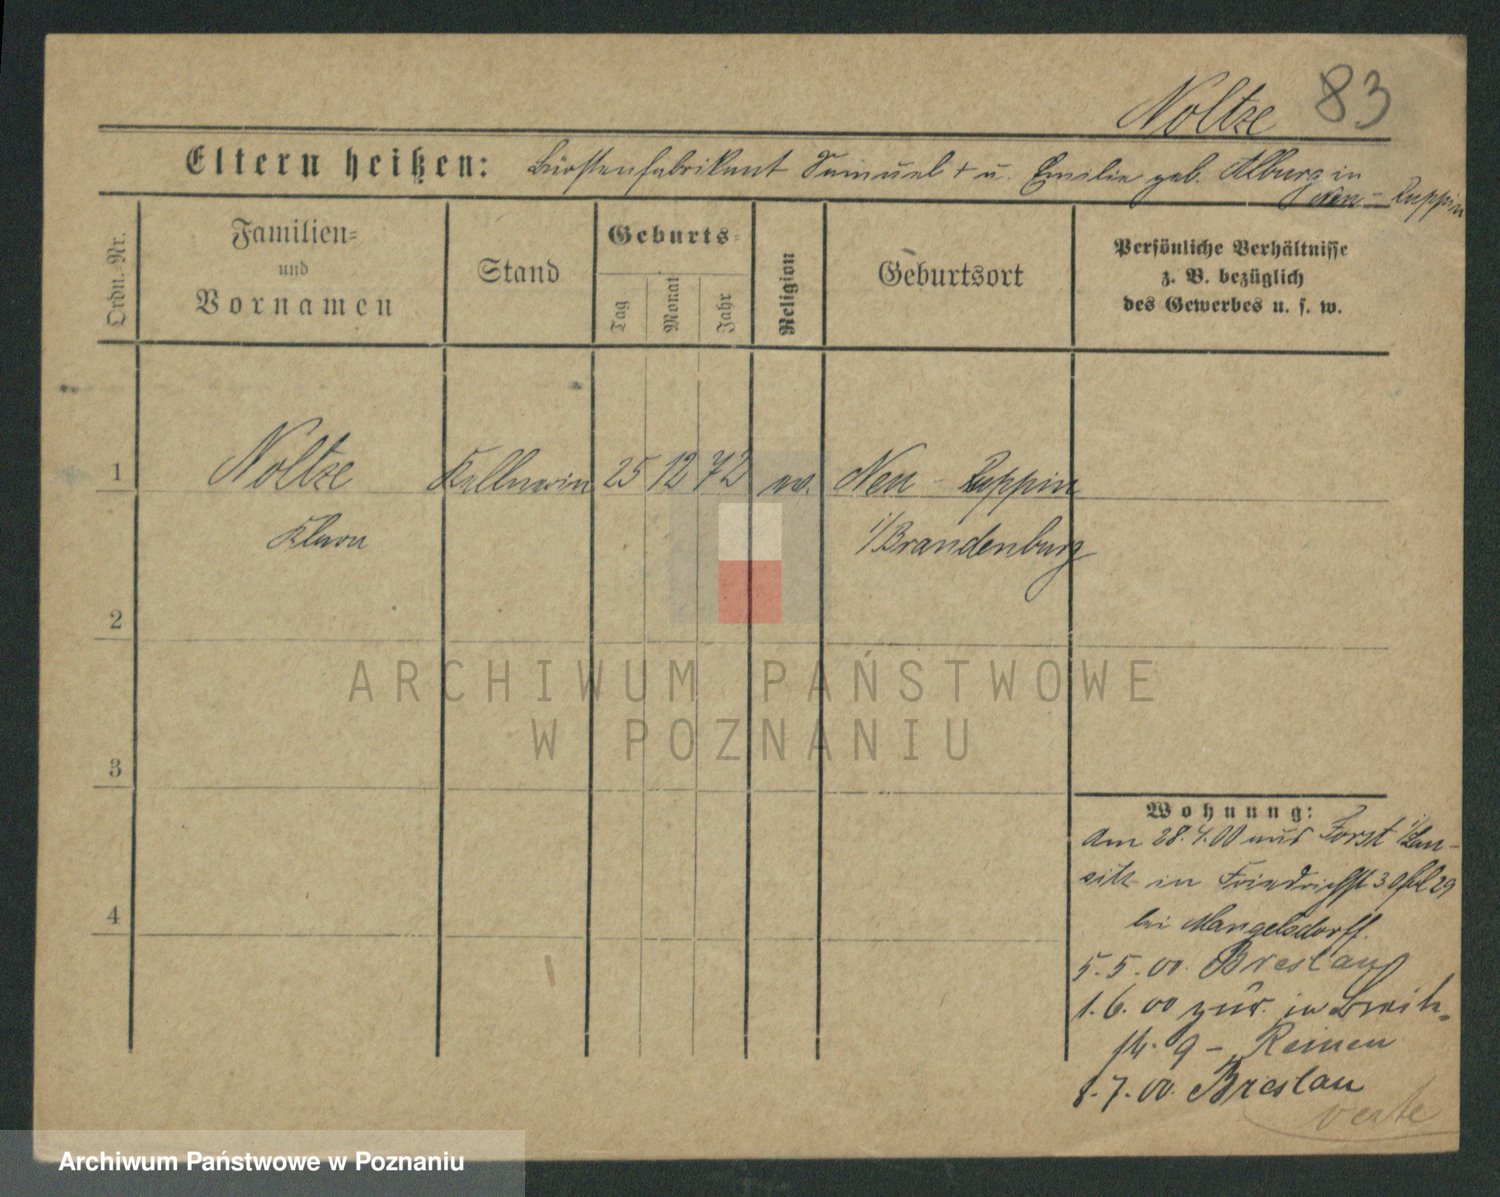 Noltze 83
Eltern heißen: Bürstenfabrikant Samuel + u. Emilie geb. Alburg in
Neu-Ruppin
Ordn.-Nr.
Familien-
und
Vornamen
Stand
Geburts-
Tag
Monat
Jahr
Religion
Geburtsort
Persönliche Verhältnisse
z. B. bezüglich
des Gewerbes u. s. w.
1 Noltze Kellnerin 25 12 72 ev. Neu-Ruppin
Klara i/Brandenburg
2
3
4
Wohnung:
Am 28.4.00 aus Forst i/Lau-
sitz in Friedrichst 30 29
bei Mangelsdorff.
5.5.00. Breslau
1.6.00 zur. in Breite-
str. 9 - Reimen
8.7.00. Breslau
verte
ARCHIWUM PAŃSTWOWE
W POZNANIU
Archiwum Państwowe w Poznaniu